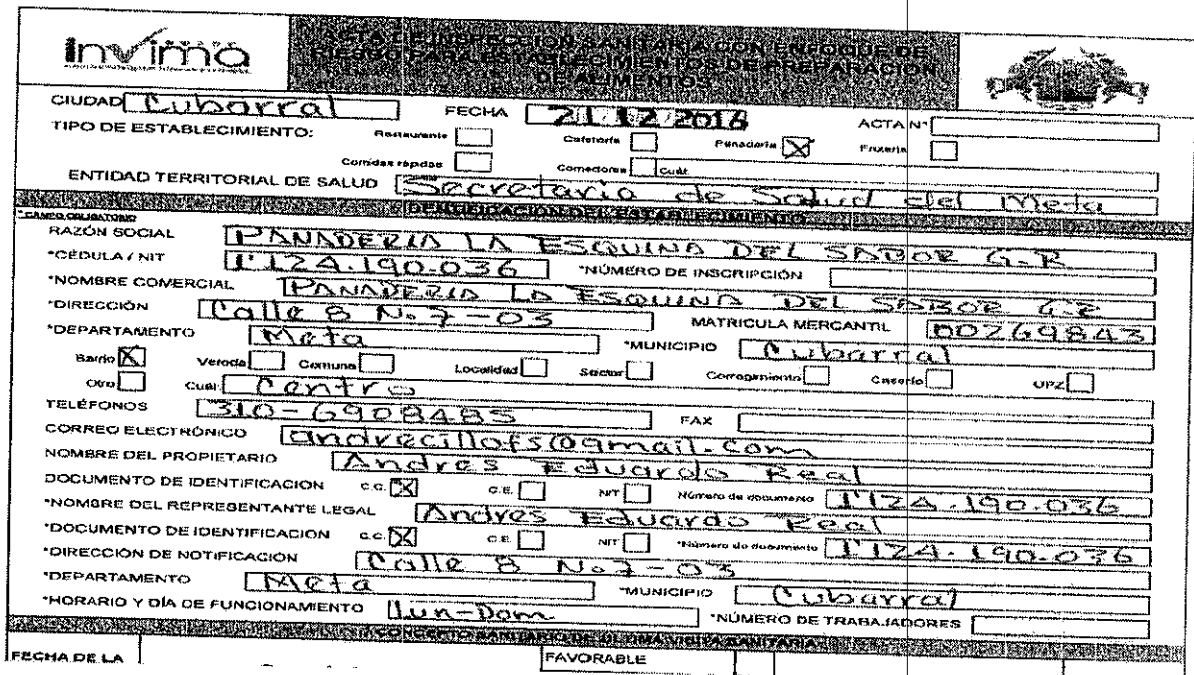 invima
ACTA DE INSPECCIÓN SANITARIA CON ENFOQUE DE
RIESGO PARA ESTABLECIMIENTOS DE PREPARACIÓN
DE ALIMENTOS
CIUDAD Cubarral FECHA 21 12 2016 ACTA N°
TIPO DE ESTABLECIMIENTO: Restaurante Cafetería Panadería X Frutería
Comidas rápidas Comedores Cuál:
ENTIDAD TERRITORIAL DE SALUD Secretaria de Salud del Meta
* CAMPO OBLIGATORIO IDENTIFICACIÓN DEL ESTABLECIMIENTO
RAZÓN SOCIAL PANADERIA LA ESQUINA DEL SABOR G-R
*CÉDULA / NIT 1'124.190.036 *NÚMERO DE INSCRIPCIÓN
*NOMBRE COMERCIAL PANADERIA LA ESQUINA DEL SABOR G-R
*DIRECCIÓN Calle 8 No 7-03 MATRICULA MERCANTIL 00269843
*DEPARTAMENTO Meta *MUNICIPIO Cubarral
Barrio X Vereda Comuna Localidad Sector Corregimiento Caserío UPZ
Otro Cuál: Centro
TELÉFONOS 310-6908485 FAX
CORREO ELECTRÓNICO andrecillofs@gmail.com
NOMBRE DEL PROPIETARIO Andres Eduardo Real
DOCUMENTO DE IDENTIFICACION C.C. X C.E. NIT Número de documento 1'124.190.036
*NOMBRE DEL REPRESENTANTE LEGAL Andres Eduardo Real
*DOCUMENTO DE IDENTIFICACION C.C. X C.E. NIT *Número de documento 1'124.190.036
*DIRECCIÓN DE NOTIFICACIÓN Calle 8 No 7-03
*DEPARTAMENTO Meta *MUNICIPIO Cubarral
*HORARIO Y DÍA DE FUNCIONAMIENTO Lun-Dom *NÚMERO DE TRABAJADORES
CONCEPTO SANITARIO DE ÚLTIMA VISITA SANITARIA
FECHA DE LA FAVORABLE